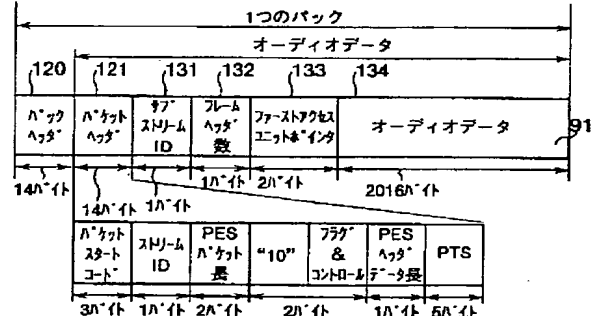 1つのパック
オーディオデータ
120 121 131 132 133 134
パック
ヘッダ
パケット
ヘッダ
サブ
ストリーム
ID
フレーム
ヘッダ
数
ファーストアクセス
ユニットポインタ
オーディオデータ
91
14バイト
14バイト
1バイト
1バイト
2バイト
2016バイト
パケット
スタート
コード
ストリーム
ID
PES
パケット
長
“10”
フラグ
&
コントロール
PES
ヘッダ
データ長
PTS
3バイト 1バイト 2バイト 2バイト 1バイト 5バイト